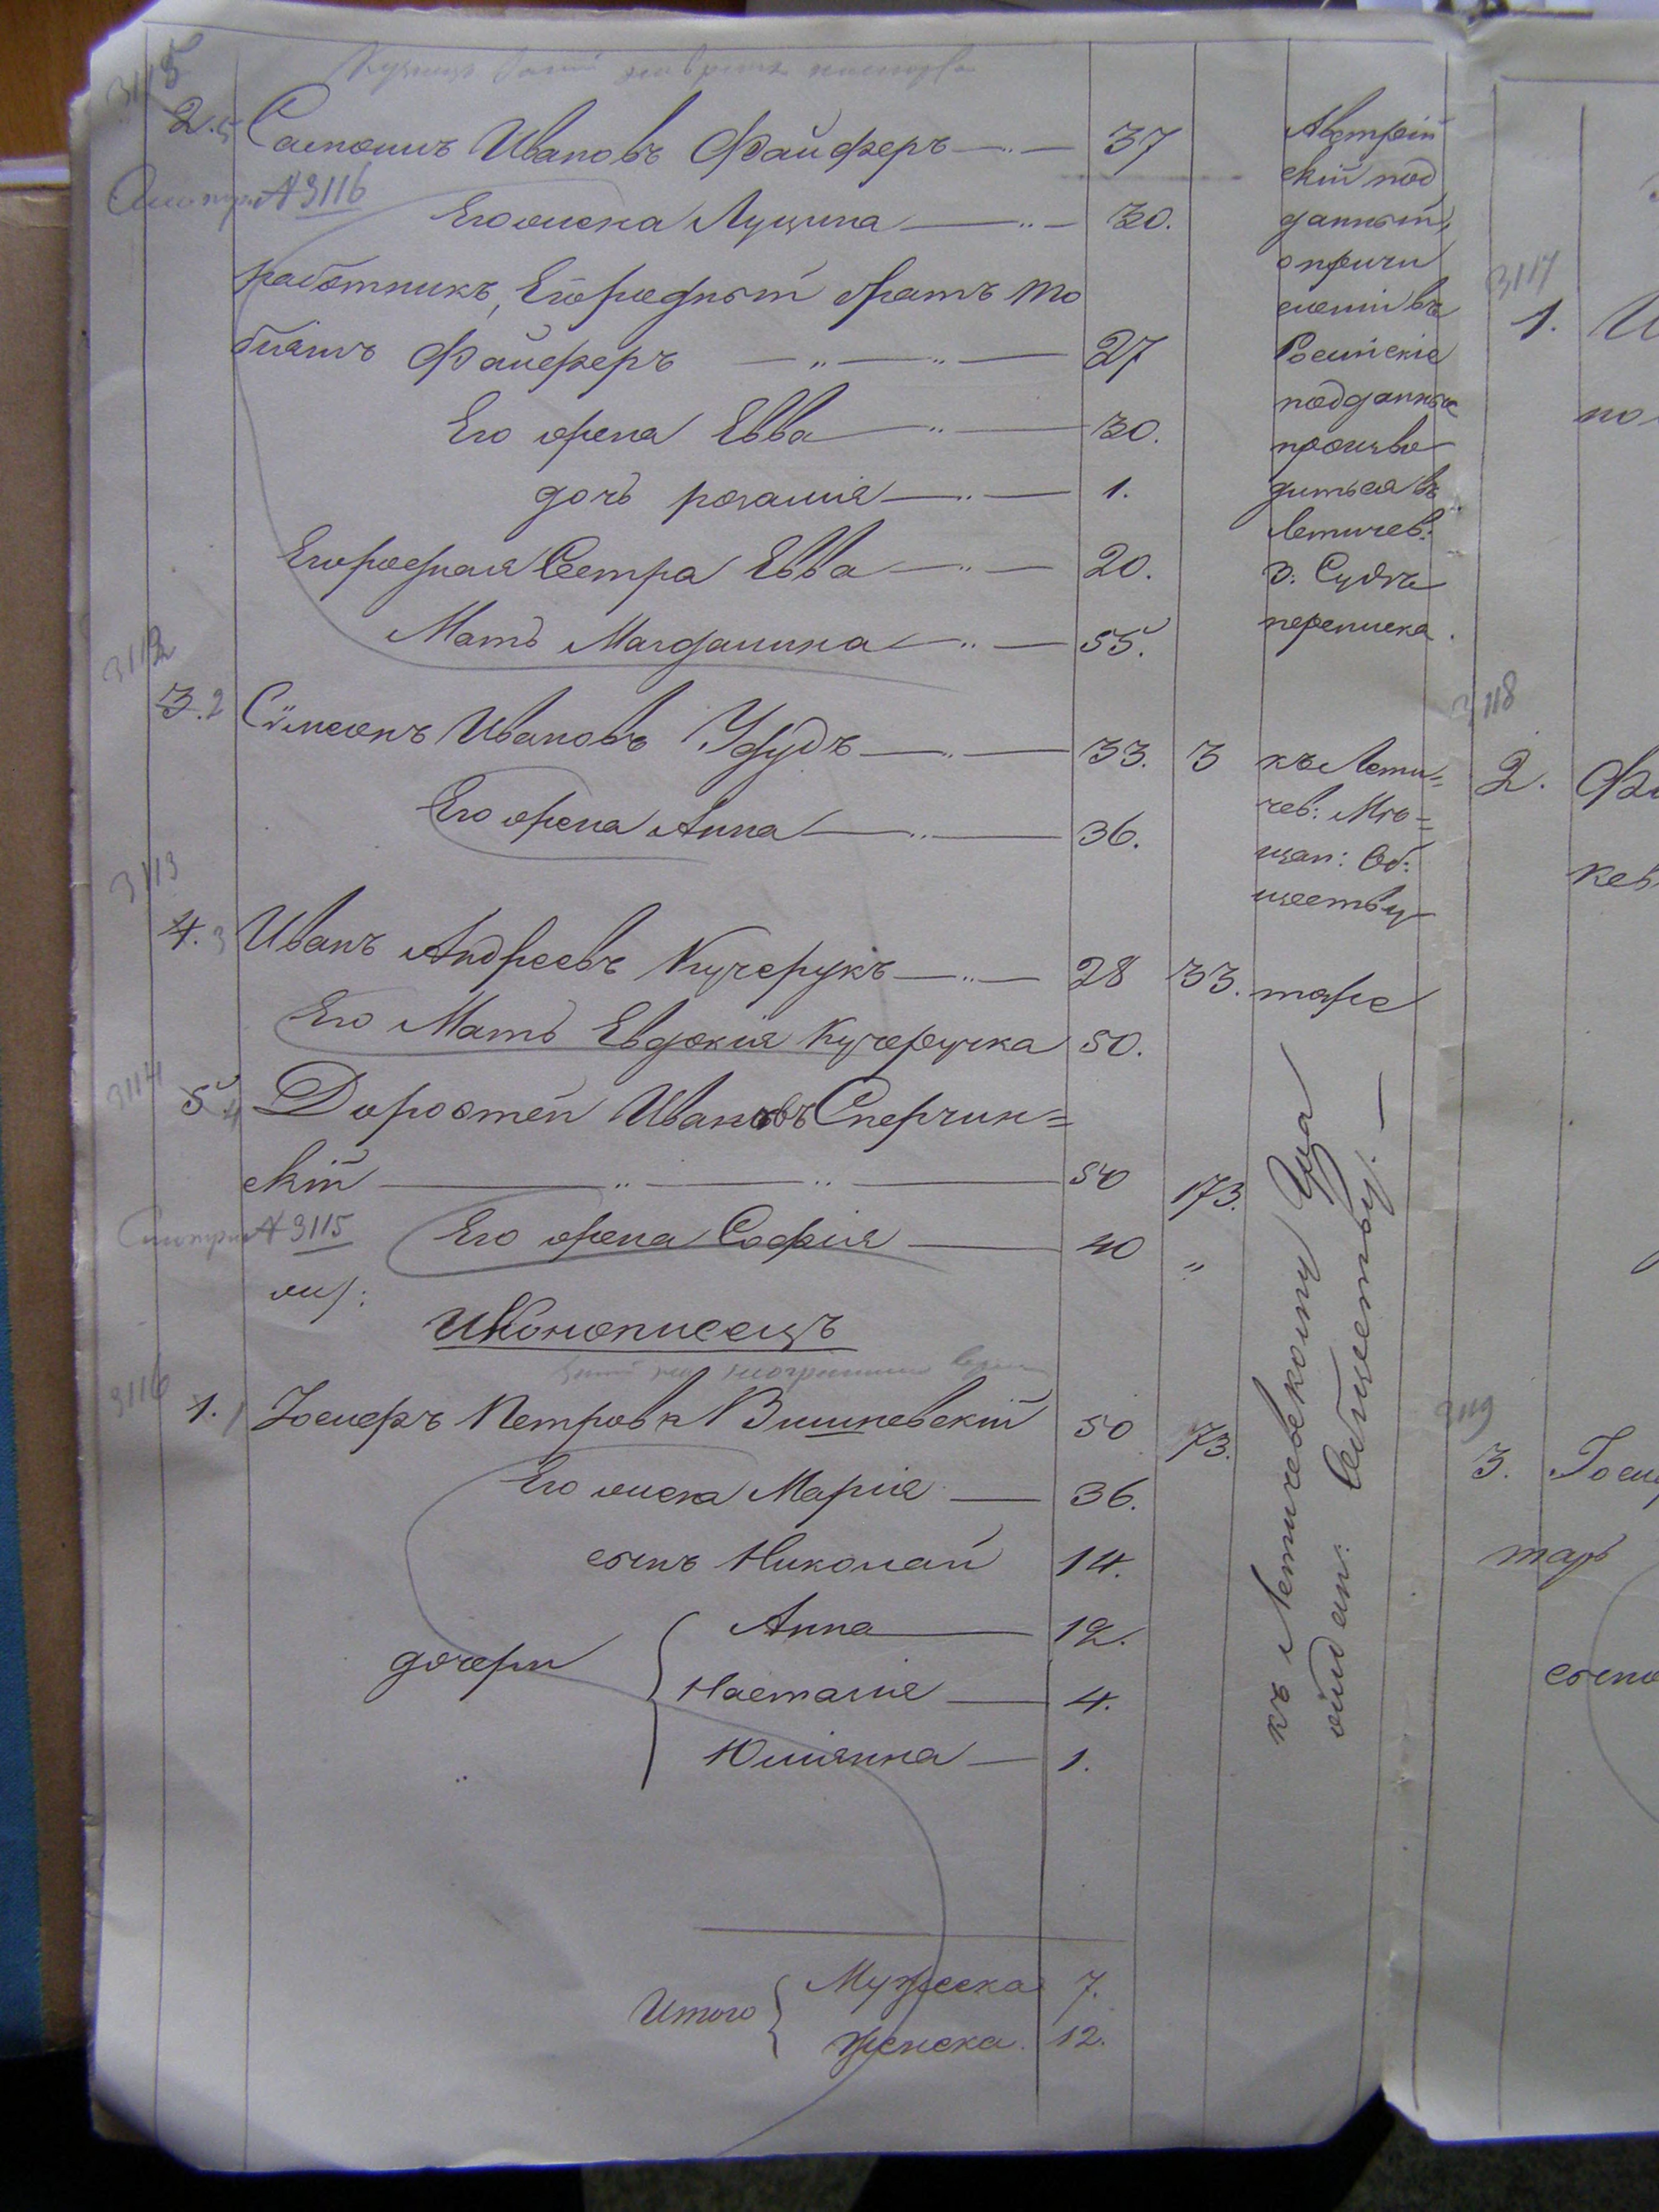 3115
2. 5 Самоилъ Ивановъ Файферъ 37
Австрій
скій под
данный,
о причи
сленіи въ
Россійскіе
подданные
произво
дится въ
Летичев:
З: Судѣ
переписка.
Смотри № 3116
Его жена Луцина 30.
работникъ, Его родный братъ То
біашъ Файферъ 27
Его жена Евва 30.
дочь розалия 1.
Его родная Сестра Евва 20.
Мать Магдалина 55.
3112
3. 2 Симеонъ Ивановъ 33. 3
къ Лети=
чев: Мѣ=
щан: Об:
ществу
Его жена Анна 36.
3113
4. 3 Иванъ Андреевъ Кучерукъ 28 33. тоже
Его Мать Евдокия Кучеручка 50.
3114
5. 4 Доростей Ивановъ Сперчин=
скій 50 173.
Смотри № 3115
Его жена София 40 "
къ Летичевскому
ойдан: Обществу. —
Иконописецъ
3116
1. 1 Іосифъ Петровъ Вишневскій 50 73.
Его жена Мария 36.
сынъ Николай 14.
дочери
Анна 12.
Настасия 4.
Юлиянна 1.
Итого
Мужеска 7.
Женска. 12.
3117
1. И
по
3118
2. Фи
кев
3119
3. Госи
тар
сыно